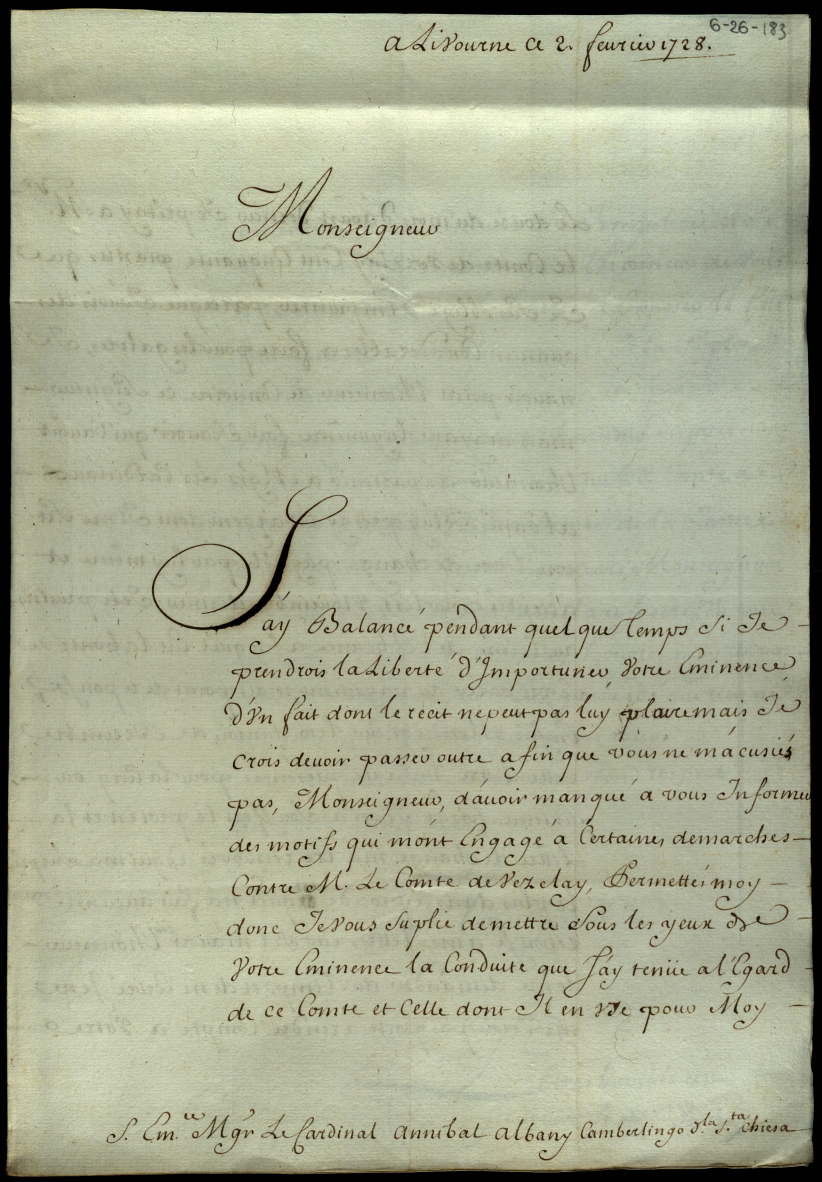 6-26-183
a Livourne ce 2. fevrier 1728.
Monseigneur
J'ay Balancé pendant quelque temps si Je
prendrois la Liberté d'Importuner Votre Eminence
d'Vn fait dont le recit ne peut pas luy plaire mais Je
crois devoir passer outre afin que vous ne m'acusiés
pas, Monseigneur, d'avoir manqué a vous Informer
des motifs qui m'ont Engagé a Certaines demarches
Contre M. Le Comte de Vezelay, Permettés moy
donc Je vous suplie de mettre sous les yeux de
Votre Eminence la Conduite que J'ay tenüe a l'Egard
de ce Comte et Celle dont Il en Vse pour Moy
S. Em.ce Mgr Le Cardinal Annibal Albany Camberlingo d.la S.ta Chiesa